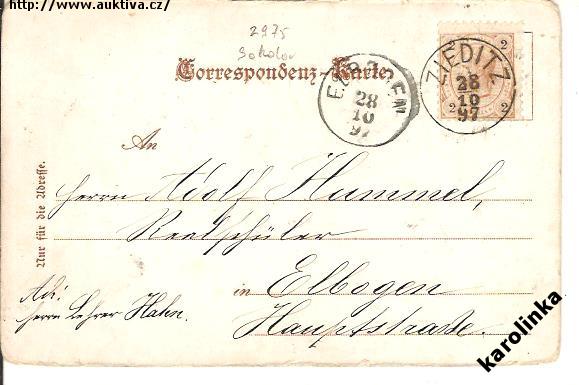 http://www.auktiva.cz/
2975
Sokolov
Correspondenz-Karte
ZIEDITZ
28
10
97
2
2 2
28
10
97
An
Herrn Adolf Hummel,
Realschüler
in Elbogen
Hauptstraße.
Adr:
Herrn Lehrer Hahn.
Nur für die Adresse.
karolinka